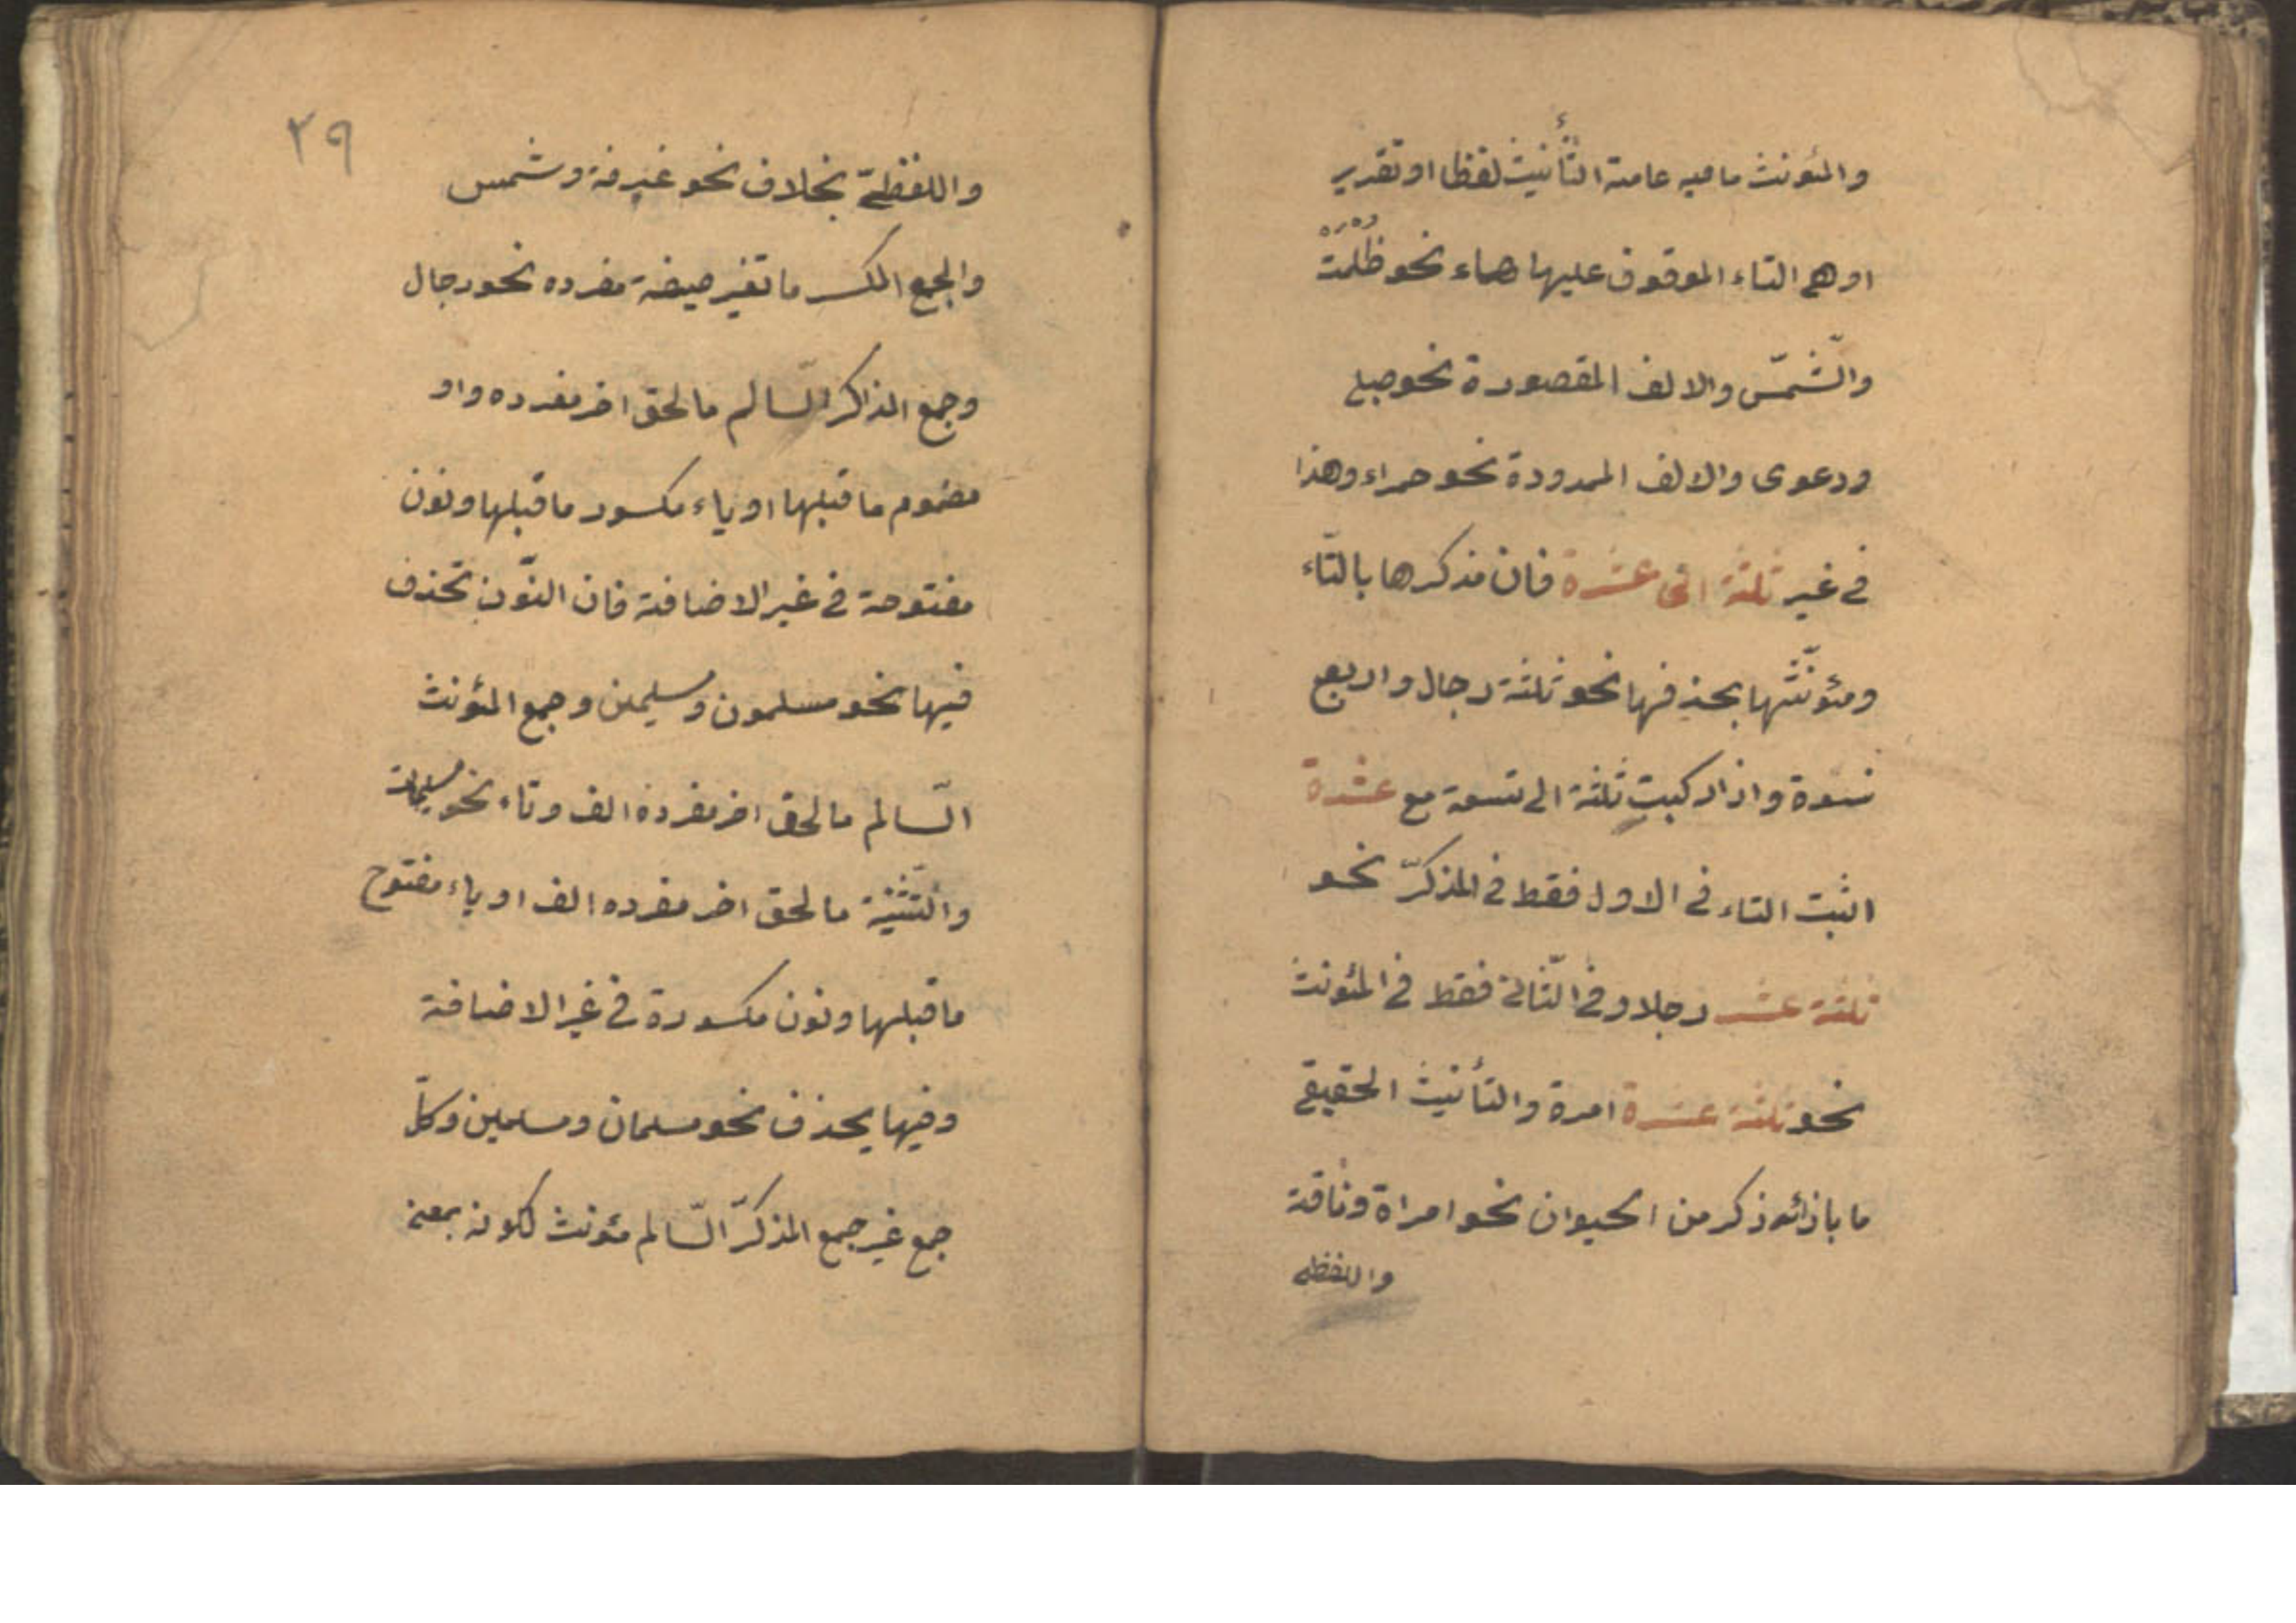 والمئونث مافيه عامة التأنيث لفظا او تقدير
او هى التاء الموقوف عليها هاء نحو ظلمت
والشّمس والالف المقصورة نحو حبلى
ودعوى والالف الممدودة نحو حمراء وهذا
فى غير ثلثة الى عشرة فان مذكرها بالتّاء
ومئونّثها بحذفها نحو ثلثة رجال واربع
نسوة واذا ركبت ثلثة الى تسعة مع عشرة
اثبت التاء فى الاول فقط فى المذكرّ نحو
ثلثة عشر رجلا وفى الثّانى فقط فى المئونث
نحو ثلثة عشرة امرة والتأنيث الحقيقى
ما بازائه ذكر من الحيوان نحو امراة وناقة
واللفظى
٣٩
واللفظىّ بخلاف نحو غيرفة وشمس
والجمع المكسر ما تغير صيغة مفرده نحو رجال
وجمع المذاكر السّالم مالحق اخر مفرده واو
مضموم ماقبلها او ياء مكسور ماقبلها ونون
مفتوحة فى غير الاضافة فان النّون تحذف
فيها نحو مسلمون ومسليمن وجمع المئونث
السّالم مالحق اخر مفرده الف وتاء نحو مسليمات
والتّثنية مالحق اخر مفرده الف او ياء مفتوح
ماقبلها ونون مكسورة فى غير الاضافة
وفيها يحذف نحو مسلمان ومسلمين وكلّ
جمع غير جمع المذكرّ السّالم مئونث لكونه بمعنى